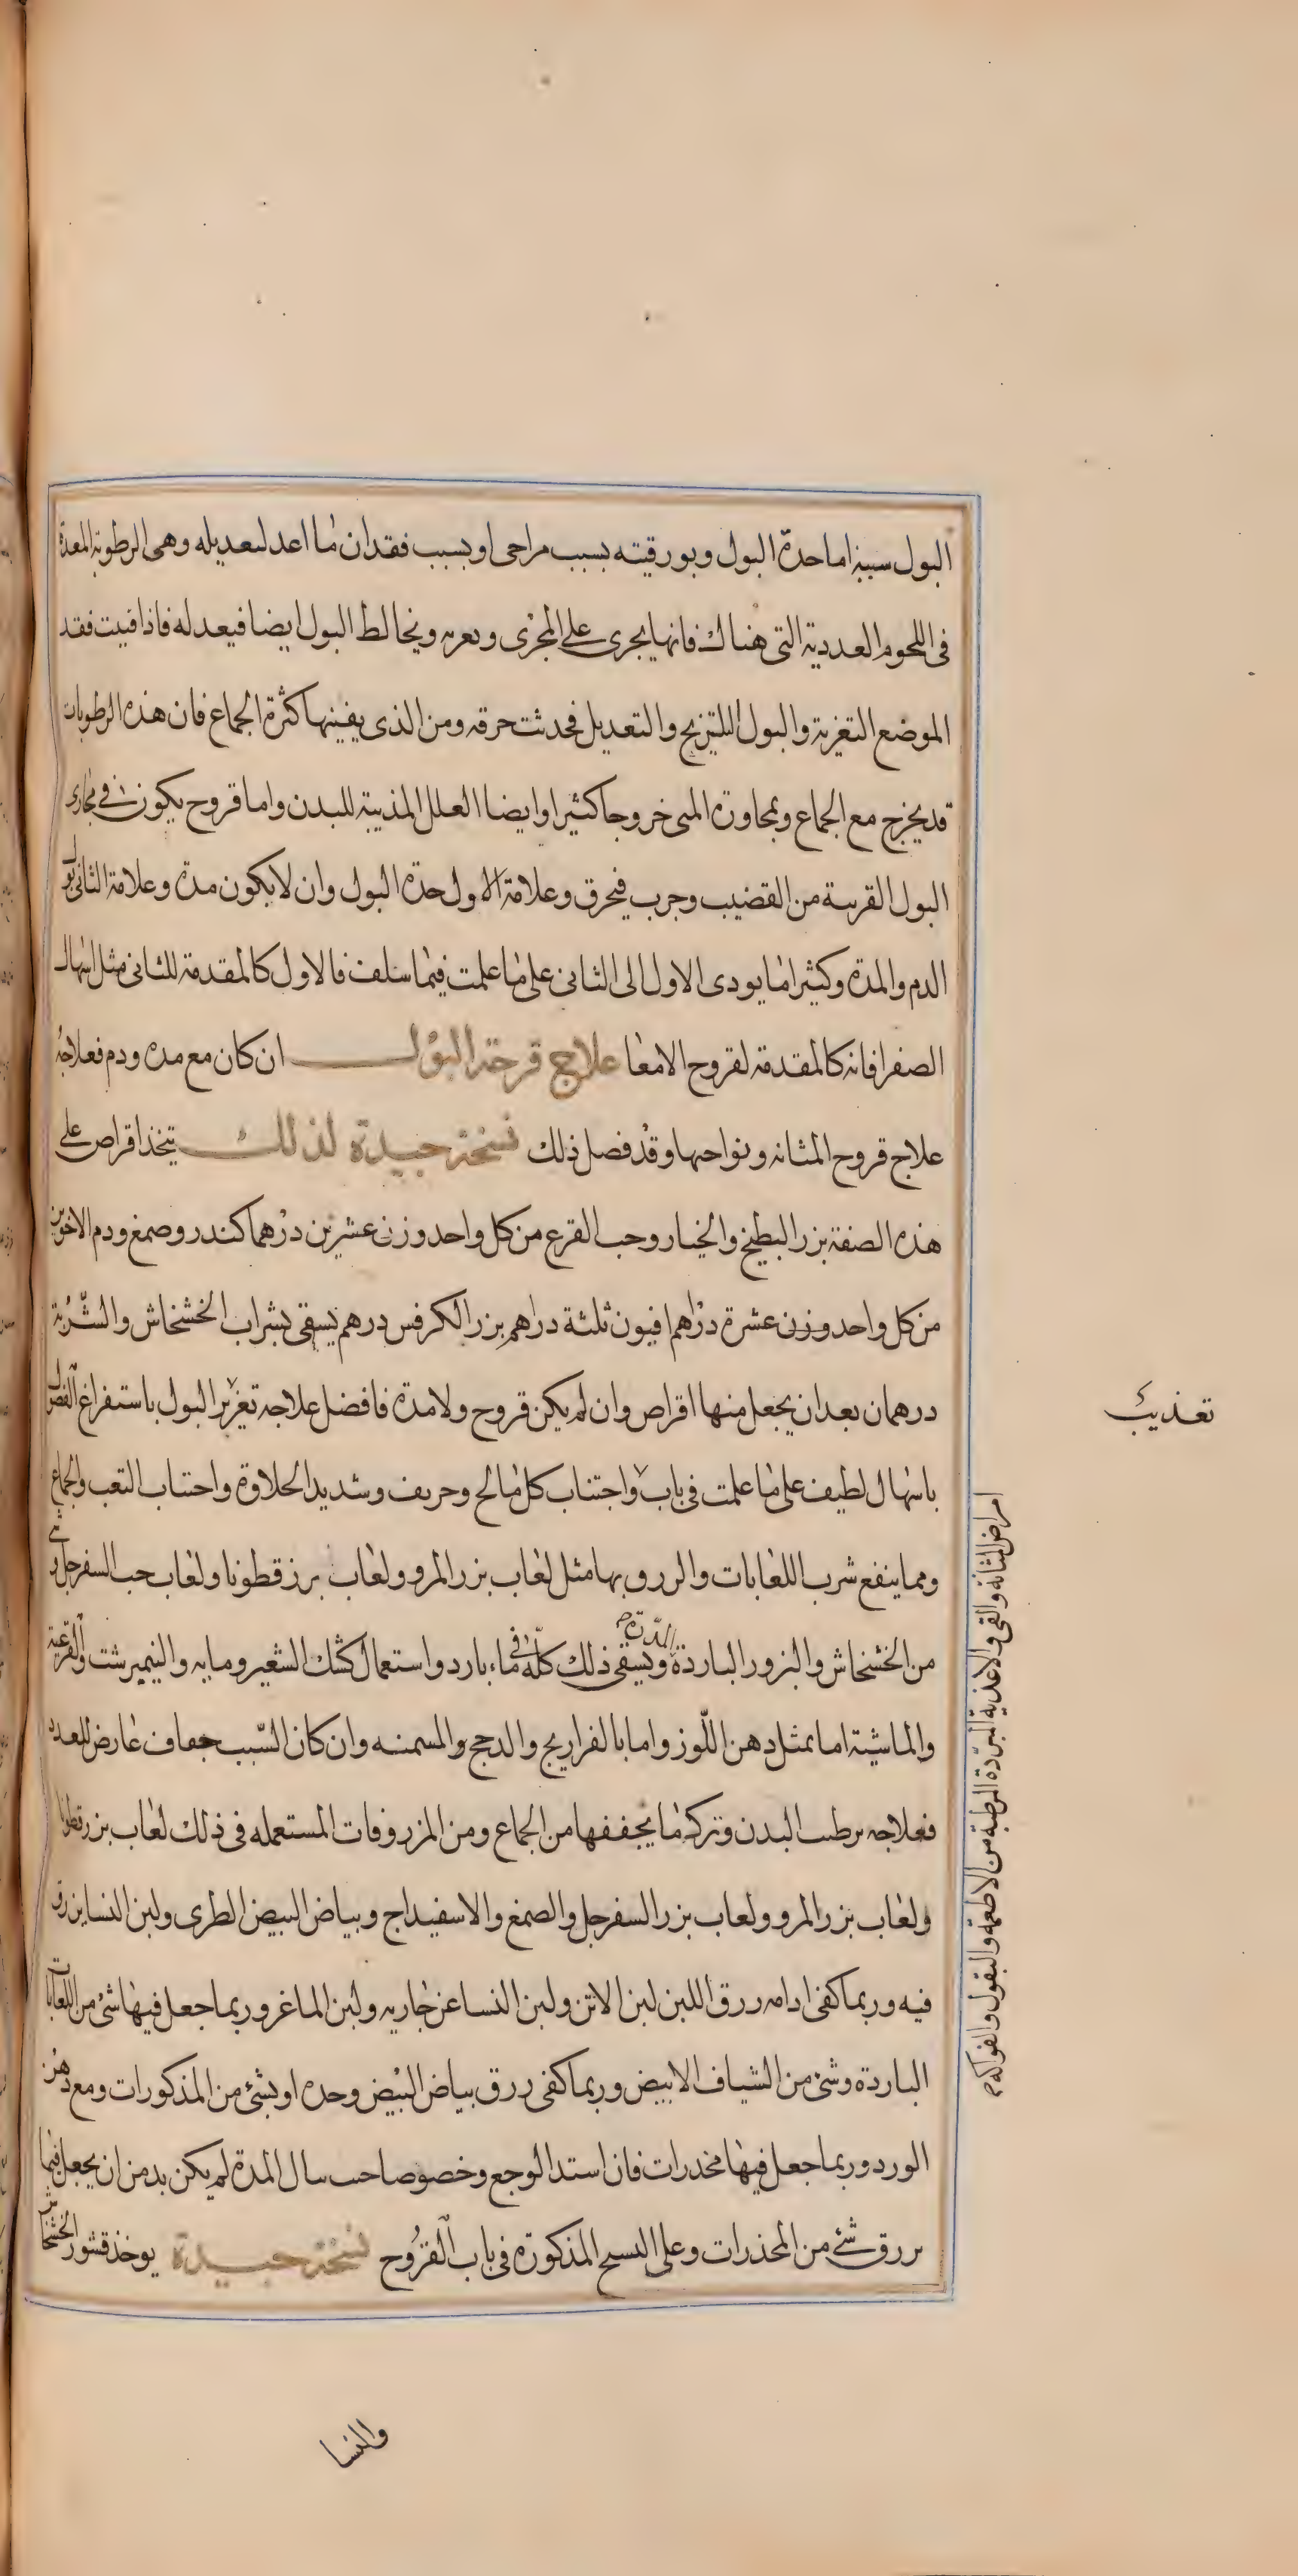 البول سببه اما حدة البول وبورقيته بسبب مزاجى او بسبب فقدان ما اعد لتعديله وهى الرطوبة المعدة
فى اللحوم الغددية التى هناك فانها يجرى على المجرى ويغريه ويخالط البول ايضا فيعدله فاذا فنيت فقد
الموضع التغرية والبول التلزيج والتعديل فحدثت حرقه ومن الذى يفنيها كثرة الجماع فان هذه الرطوبات
قد يخرج مع الجماع وبمجاورة المنى خروجا كثيرا وايضا العلل المذيبة للبدن واما قروح يكون فى مجارى
البول القريبة من القضيب وجرب فيحرق وعلامة الاول حدة البول وان لا يكون مدة وعلامة الثانى بول
الدم والمدة وكثيرا ما يودى الاول الى الثانى على ما علمت فيما سلف فالاول كالمقدمة للثانى مثل اسهال
الصفرا فانه كالمقدمة لقروح الامعا علاج قرحة البول ان كان مع مده ودم فعلاجه
علاج قروح المثانه ونواحيها وقد فصل ذلك نسخة جيدة لذلك يتخذ اقراص على
هذه الصفة بزر البطيخ والخيار وحب القرع من كل واحد وزن عشرين درهما كندر وصمغ ودم الاخوين
من كل واحد وزن عشرة دراهم افيون ثلثة دراهم بزر الكرفس درهم يسقى بشراب الخشخاش والشربة
درهمان بعد ان يجعل منها اقراص وان لم يكن قروح ولا مدة فافضل علاجه تغزير البول باستفراغ الفضول
باسهال لطيف على ما علمت فى باب واجتناب كل مالح وحريف وشديد الحلاوة واجتناب التعب والجماع
ومما ينفع شرب اللعابات والزرق بها مثل لعاب بزر المرو ولعاب بزر قطونا ولعاب حب السفرجل وشى
من الخشخاش والبزور الباردة المدرة ويسقى ذلك كله فى ماء بارد واستعمال كشك الشعير ومايه والنيمبرشت والقرعية
والماشية اما بمثل دهن اللوز واما بالفراريج والدجج والمسمنه وان كان السبب جفاف عارض للغدد
فعلاجه ترطيب البدن وترك ما يجففها من الجماع ومن المزروقات المستعمله فى ذلك لعاب بزر قطونا
ولعاب بزر المرو ولعاب بزر السفرجل والصمغ والاسفيداج وبياض البيض الطرى ولبن النسا يزرق
فيه وربما كفى ادامه زرق اللبن لبن الاتن ولبن النسا عن جاريه ولبن الماعز وربما جعل فيها شئ من اللعابات
الباردة وشئ من الشياف الابيض وربما كفى زرق بياض البيض وحده او بشئ من المذكورات ومع دهن
الورد وربما جعل فيها مخدرات فان اشتد الوجع وخصوصا حب سال المدة لم يكن بد من ان يجعل فيما
يزرق شئ من المخدرات وعلى النسخ المذكورة فى باب القروح نسخة جيدة يوخذ قشور الخشخاش
امراض المثانة والقى والاغذية المبردة المرطبة من الاطعمة والبقول والفواكه
والنسا